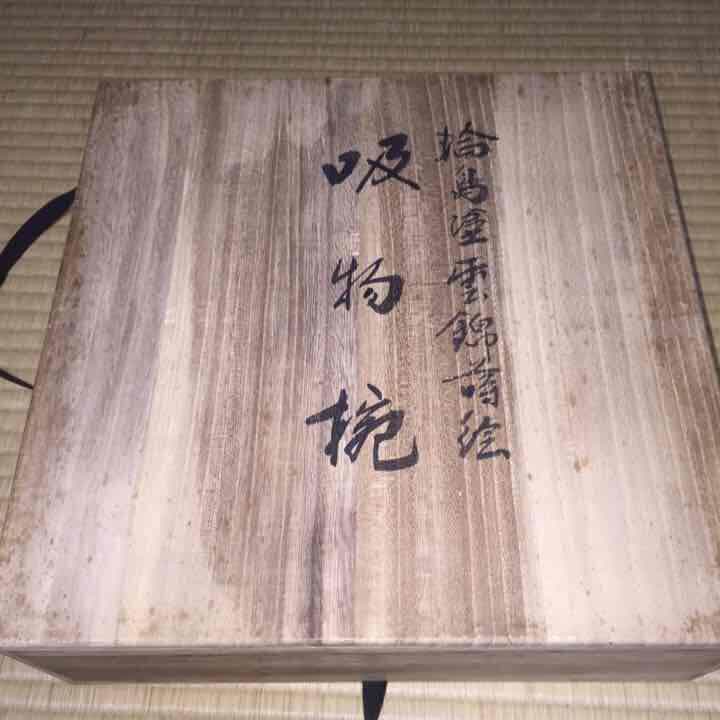 輪島塗雲錦蒔絵
吸物椀